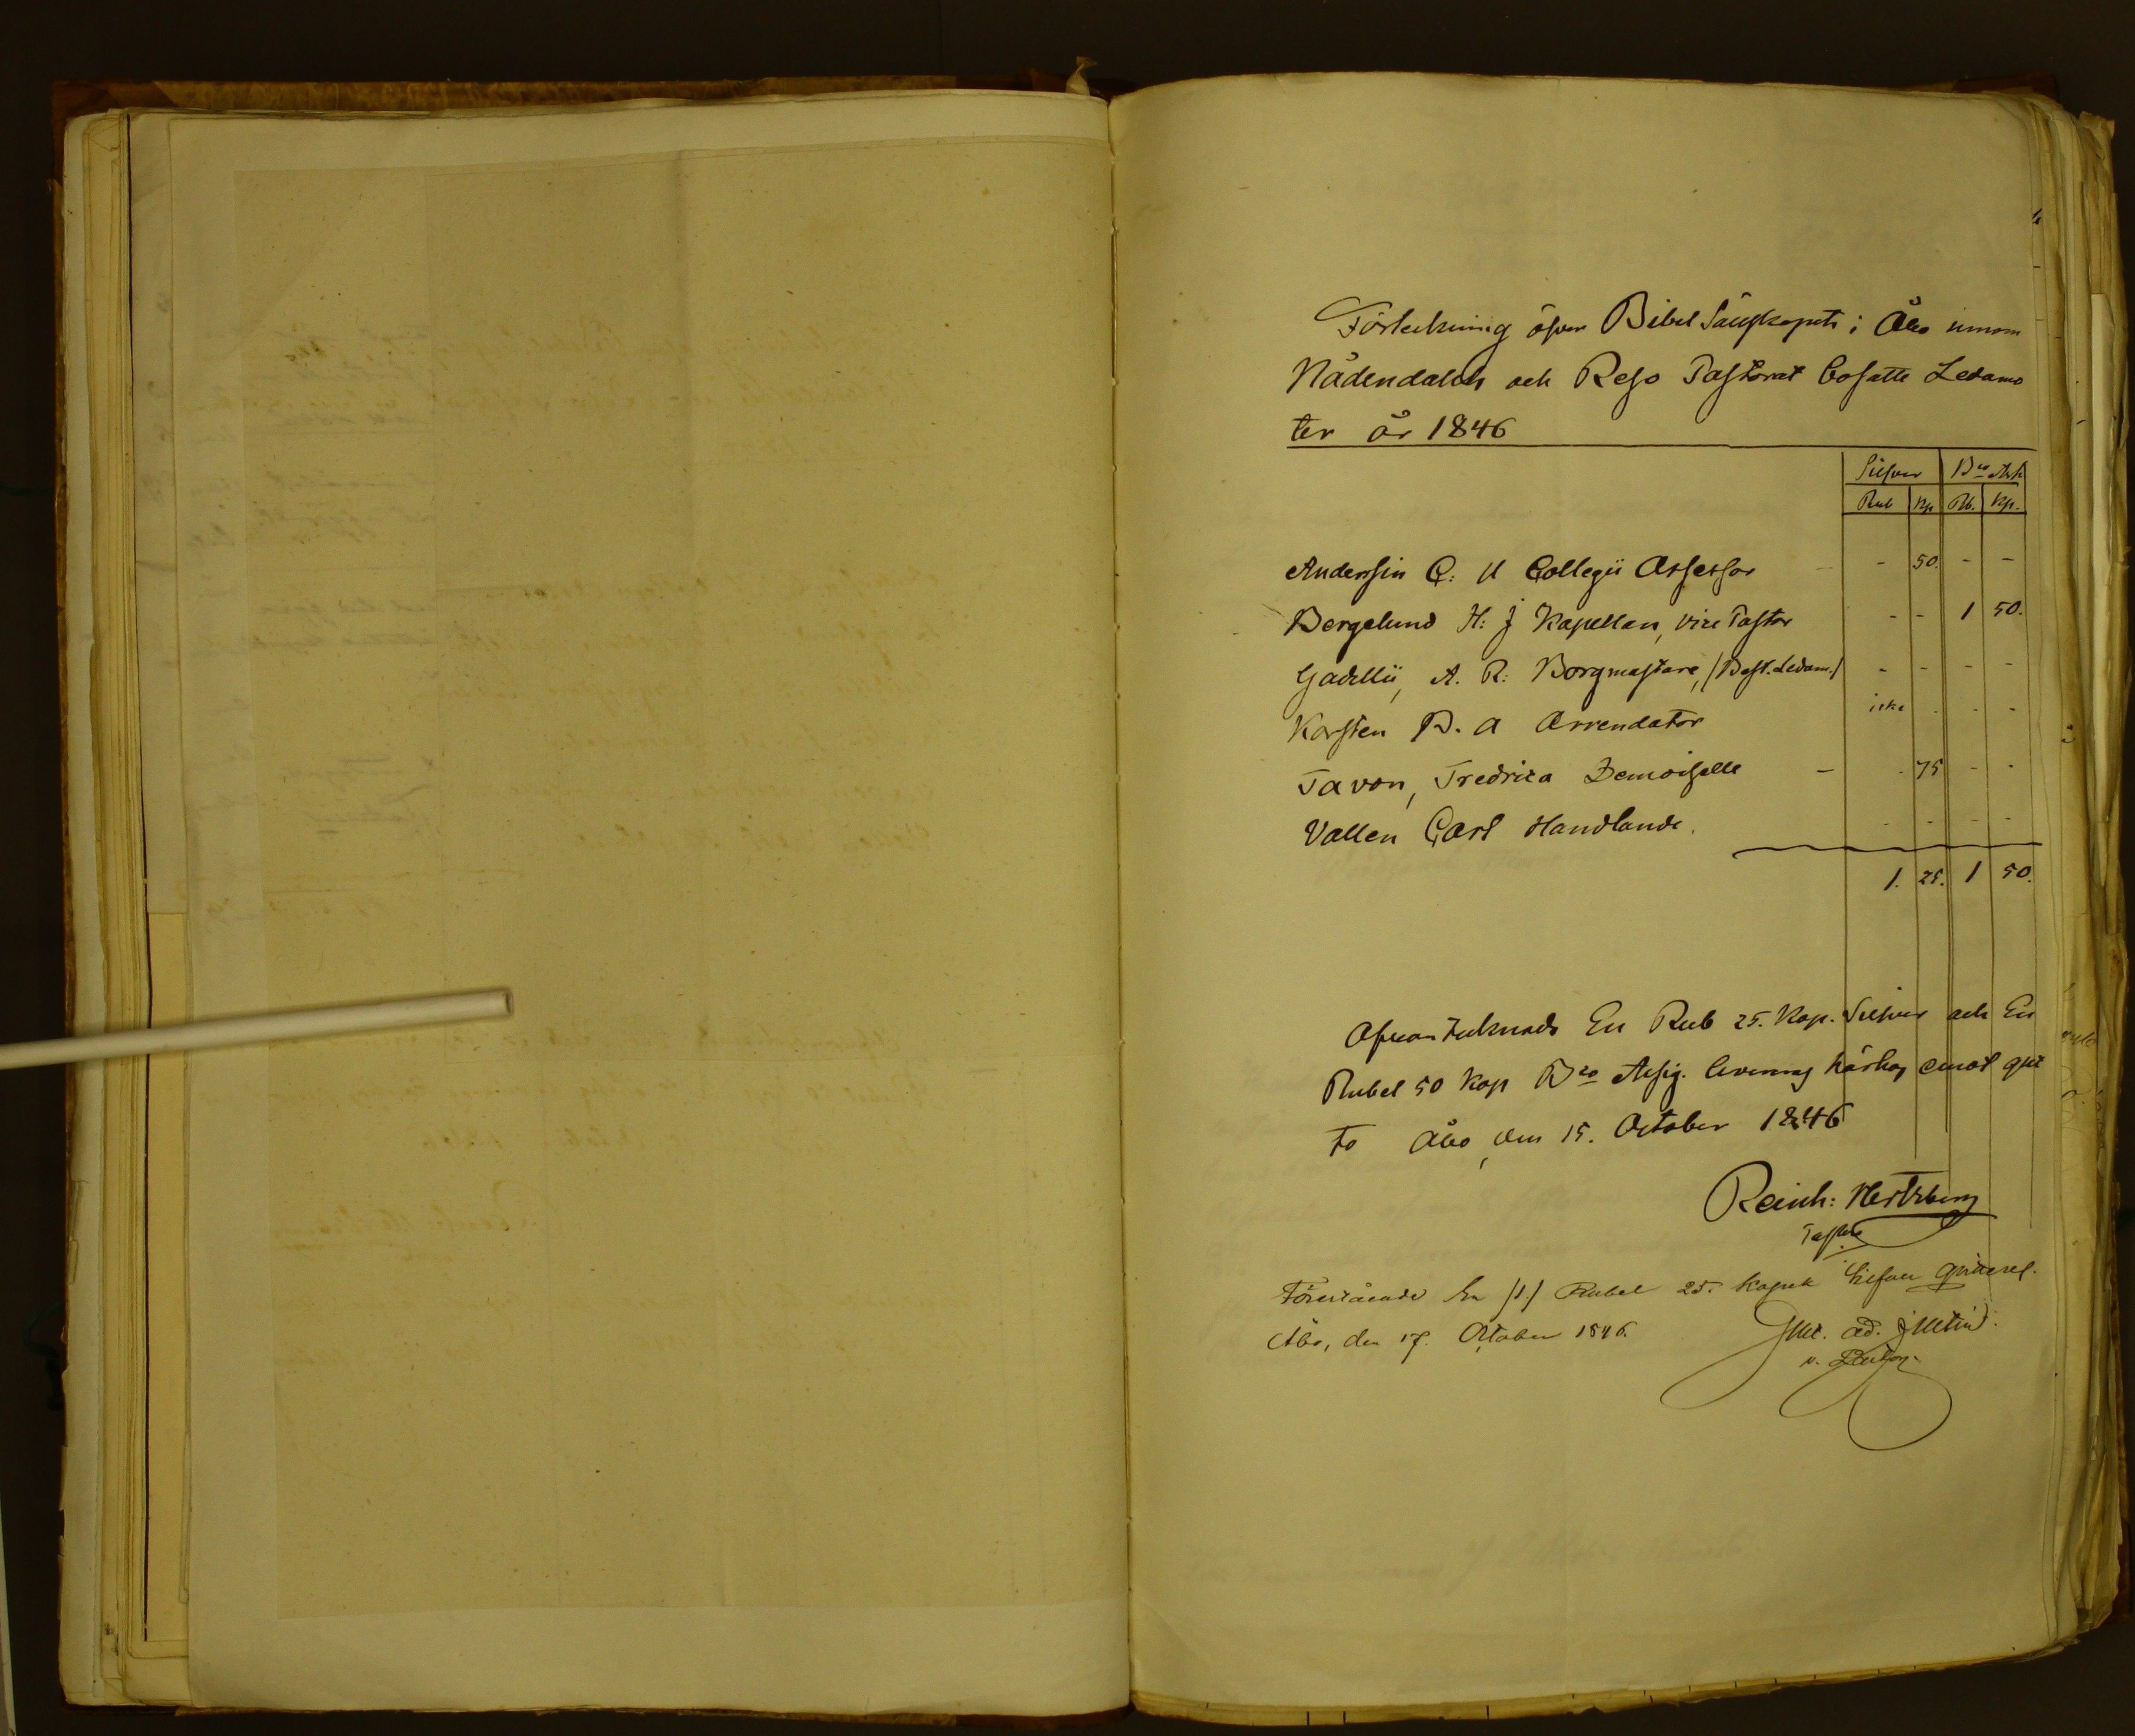 Förteckning öfver Bibel Sällskapets i Åbo innom
Nådendahls och Reso Pastorat bosatte Ledamo
ter år 1846
Silfver Bco Ass
Rub Kp Rb. Kp.
Anderssin C: U Collegii Assessor - 50. - -
Bergelund H: J Kapellan, vice Pastor - - 1 50.
Gadelli, A. R: Borgmästare, /Best. Ledam./ - - - -
Karsten B. A Arrendator icke - - -
Tavon, Fredrica Demoiselle - - 75 - -
Vallen Carl Handlande. - - - -
1. 25. 1 50.
Ofvan tecknade En Rub 25. Kop. Silfver och En
Rubel 50 Kop Bco Assig. levereras härhos emot qvit
to Åbo, den 15. October 1846
Reinh: Hertzberg
Pastor
Förestående En /1/ Rubel 25. Kopek Silfver qviteras.
Åbo, den 17. October 1846.